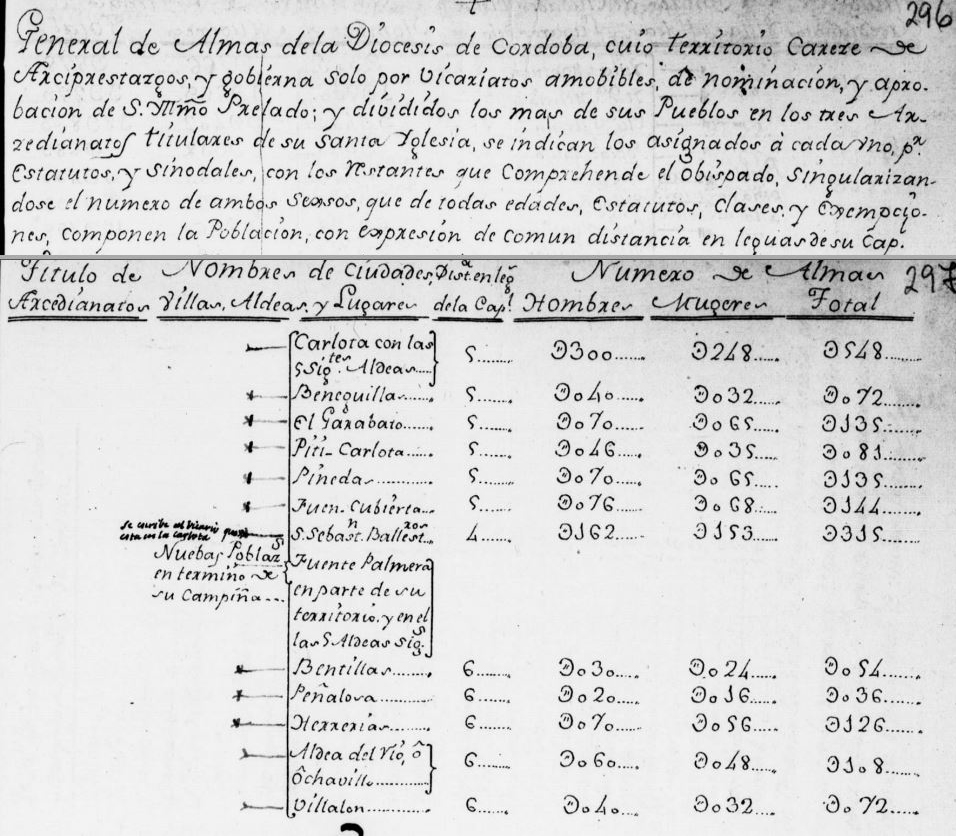 296
General de Almas dela Diocesis de Cordoba, cuio territorio Carece de
Arciprestazgos, y gobierna solo por Vicariatos amobibles, de nominación, y apro-
bación de S. Yllmô Prelado; y divididos los mas de sus Pueblos en los tres Ar-
zedianatos titulares de su Santa Yglesia, se indican los asignados à cada vno, pr.
Estatutos, y Sinodales, con los restantes que Comprehende el obispado, Singularizan-
dose el numero de ambos Sexsos, que de todas edades, Estatutos, Clases, y Exempcio-
nes, componen la Población, con expresión de comun distancia en leguas de su Cap.
Titulo de Nombres de Ciudades, Dista. en leg. Numero de Almas 297
Arcedianatos Villas, Aldeas, y Lugares dela Capl. Hombres Mugeres Total
Carlota con las
5 sigtes. Aldeas..... 5....... Ɔ300...... Ɔ248..... Ɔ548.......
Benequillas...... 5..... Ɔo40...... Ɔo32..... Ɔo72.......
El Garabato...... 5..... Ɔo70...... Ɔo65..... Ɔ135.......
Piti-Carlota..... 5..... Ɔo46...... Ɔo35..... Ɔo81.......
Pineda......... 5..... Ɔo70...... Ɔo65..... Ɔ135.......
Fuen-Cubierta... 5..... Ɔo76...... Ɔo68..... Ɔ144.......
se escribe al Vicario
esta en la Carlota S. Sebastn. Ballestzos. 4..... Ɔ162...... Ɔ153..... Ɔ315.......
Nuebas Poblazs.
en termino de
su Campiña...
Fuente Palmera
en parte de su
territorio, y en el
las 5 Aldeas sigs.
Bentillas......... 6..... Ɔo30..... Ɔo24..... Ɔo54.......
Peñalosa........ 6..... Ɔo20..... Ɔo16..... Ɔo36.......
Herrerias....... 6..... Ɔo70..... Ɔo56..... Ɔ126.......
Aldea del rio, ô
ôchavillo......... 6..... Ɔo60..... Ɔo48..... Ɔ1o8.......
Villalon.......... 6..... Ɔo40..... Ɔo32..... Ɔo72.......